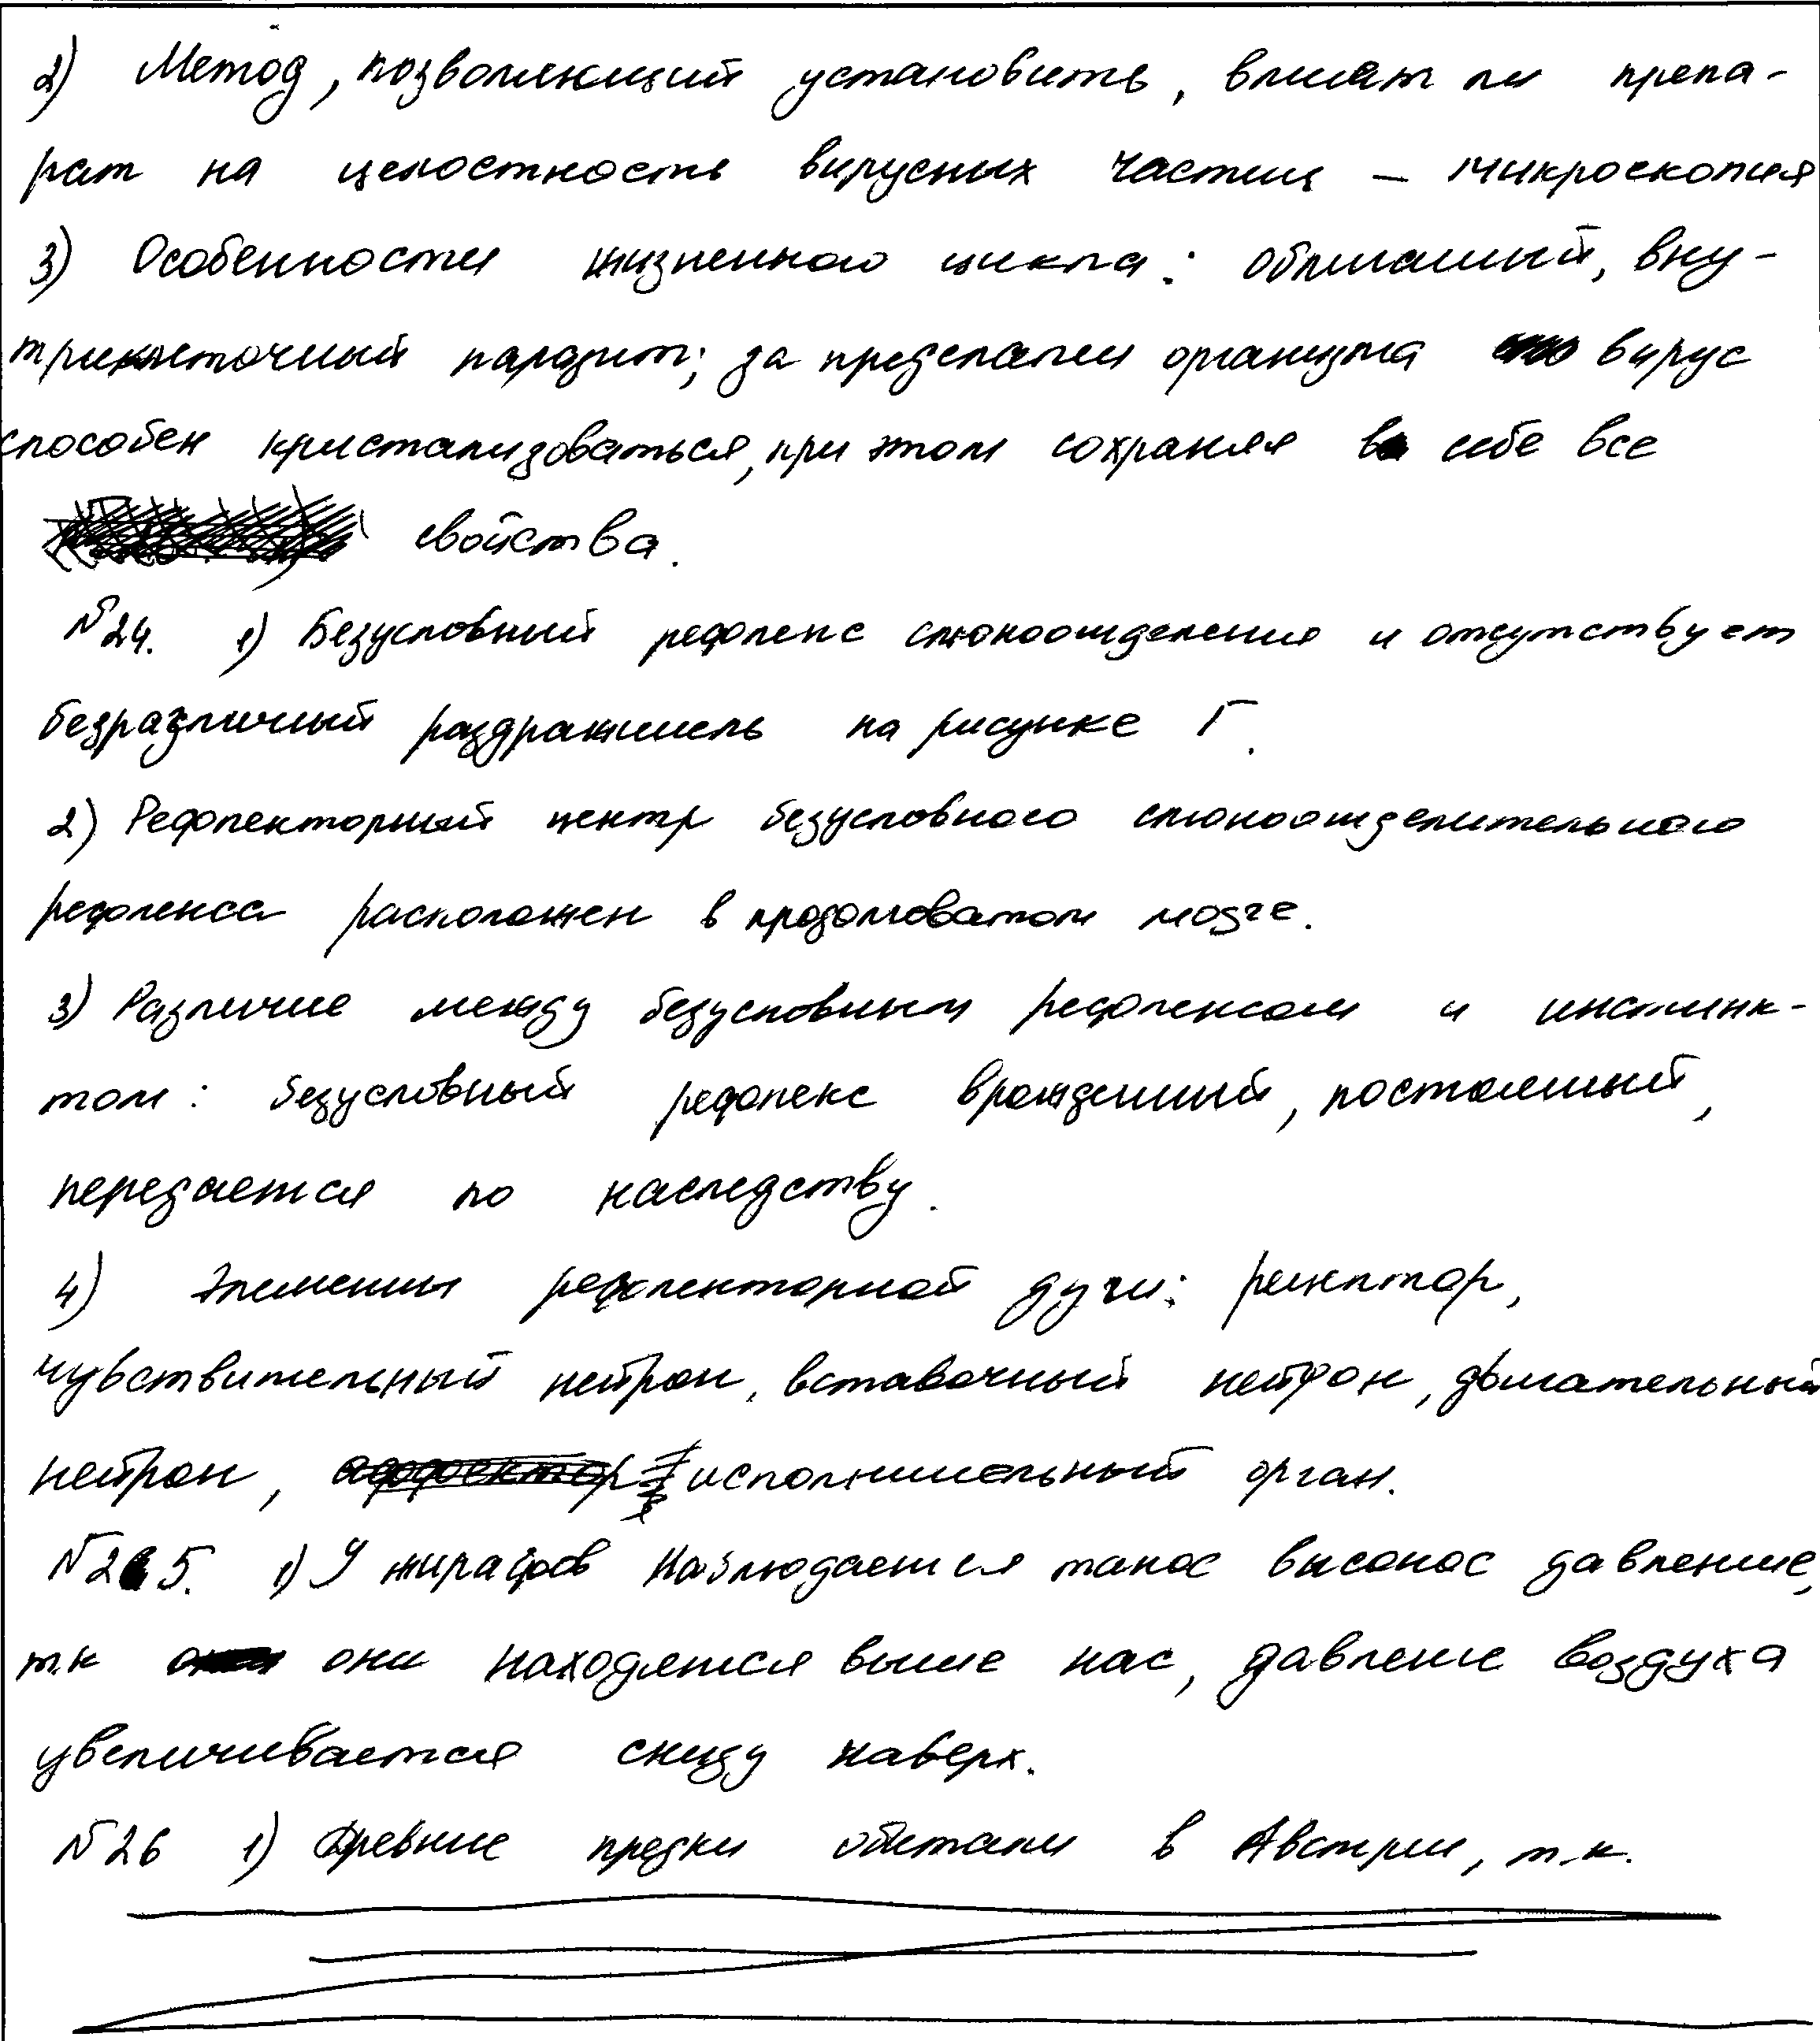 2) Метод, позволяющий установить, влияет ли препа-
рат на целостность вирусных частиц – микроскопия
3) Особенности жизненного цикла: облигатный, вну-
триклеточный паразит; за пределами организма вирус
способен кристализоваться, при этом сохраняя в себе все
свойства.
№24. 1) Безусловный рефлекс слюноотделения и отсутствует
безразличный раздражитель на рисунке Г.
2) Рефлекторный центр безусловного слюноотделительного
рефлекса расположен в продолговатом мозге.
3) Различие между безусловным рефлексом и инстинк-
том: безусловный рефлекс врожденный, постоянный,
передается по наследству.
4) Элементы рефлекторной дуги: рецептор,
чувствительный нейрон, вставочный нейрон, двигательный
нейрон, эффектор, исполнительный орган.
№25. 1) У жирафов наблюдается такое высокое давление,
т.к они находятся выше нас, давление воздуха
увеличивается снизу наверх.
№26 1) Древние предки обитали в Австрии, т.к.